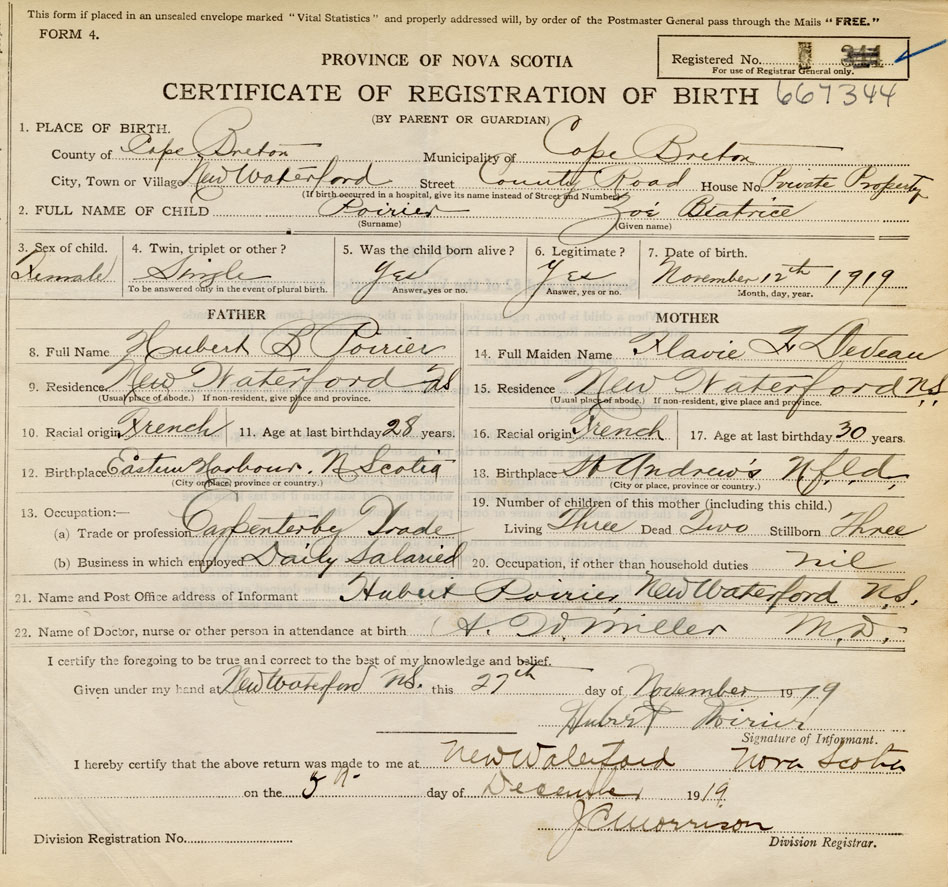 This form if placed in an unsealed envelope marked "Vital Statistics" and properly addressed will, by order of the Postmaster General pass through the Mails "FREE."
FORM 4.
Registered No.
For use of Registrar General only.
PROVINCE OF NOVA SCOTIA
CERTIFICATE OF REGISTRATION OF BIRTH 667344
(BY PARENT OR GUARDIAN)
1. PLACE OF BIRTH.
County of Cape Breton Municipality of Cape Breton
City, Town or Village New Waterford Street County Road House No. Private Property
(If birth occurred in a hospital, give its name instead of Street and Number)
2. FULL NAME OF CHILD Poirier Zoé Beatrice
(Surname) (Given name)
3. Sex of child. 4. Twin, triplet or other? 5. Was the child born alive? 6. Legitimate? 7. Date of birth.
Female Single Yes Yes November 12th 1919
To be answered only in the event of plural birth. Answer, yes or no. Answer, yes or no. Month, day, year.
FATHER MOTHER
8. Full Name Hubert B Poirier 14. Full Maiden Name Flavie F Deveau
9. Residence. New Waterford NS 15. Residence New Waterford N.S.
(Usual place of abode.) If non-resident, give place and province. (Usual place of abode.) If non-resident, give place and province.
10. Racial origin French 11. Age at last birthday 28 years. 16. Racial origin French 17. Age at last birthday 30 years.
12. Birthplace Eastern Harbour. N Scotia 18. Birthplace St Andrew's Nfld.
(City or place, province or country.) (City or place, province or country.)
13. Occupation:— 19. Number of children of this mother (including this child.)
(a) Trade or profession Carpenter by Trade Living Three Dead Two Stillborn Three
(b) Business in which employed Daily Salaried 20. Occupation, if other than household duties nil
21. Name and Post Office address of Informant Hubert Poirier New Waterford N.S.
22. Name of Doctor, nurse or other person in attendance at birth A. W. Miller M.D.
I certify the foregoing to be true and correct to the best of my knowledge and belief.
Given under my hand at New Waterford N.S. this 27th day of November 1919
Hubert Poirier
Signature of Informant.
I hereby certify that the above return was made to me at New Waterford Nova Scotia
on the day of December 1919
J C Morrison
Division Registration No. Division Registrar.